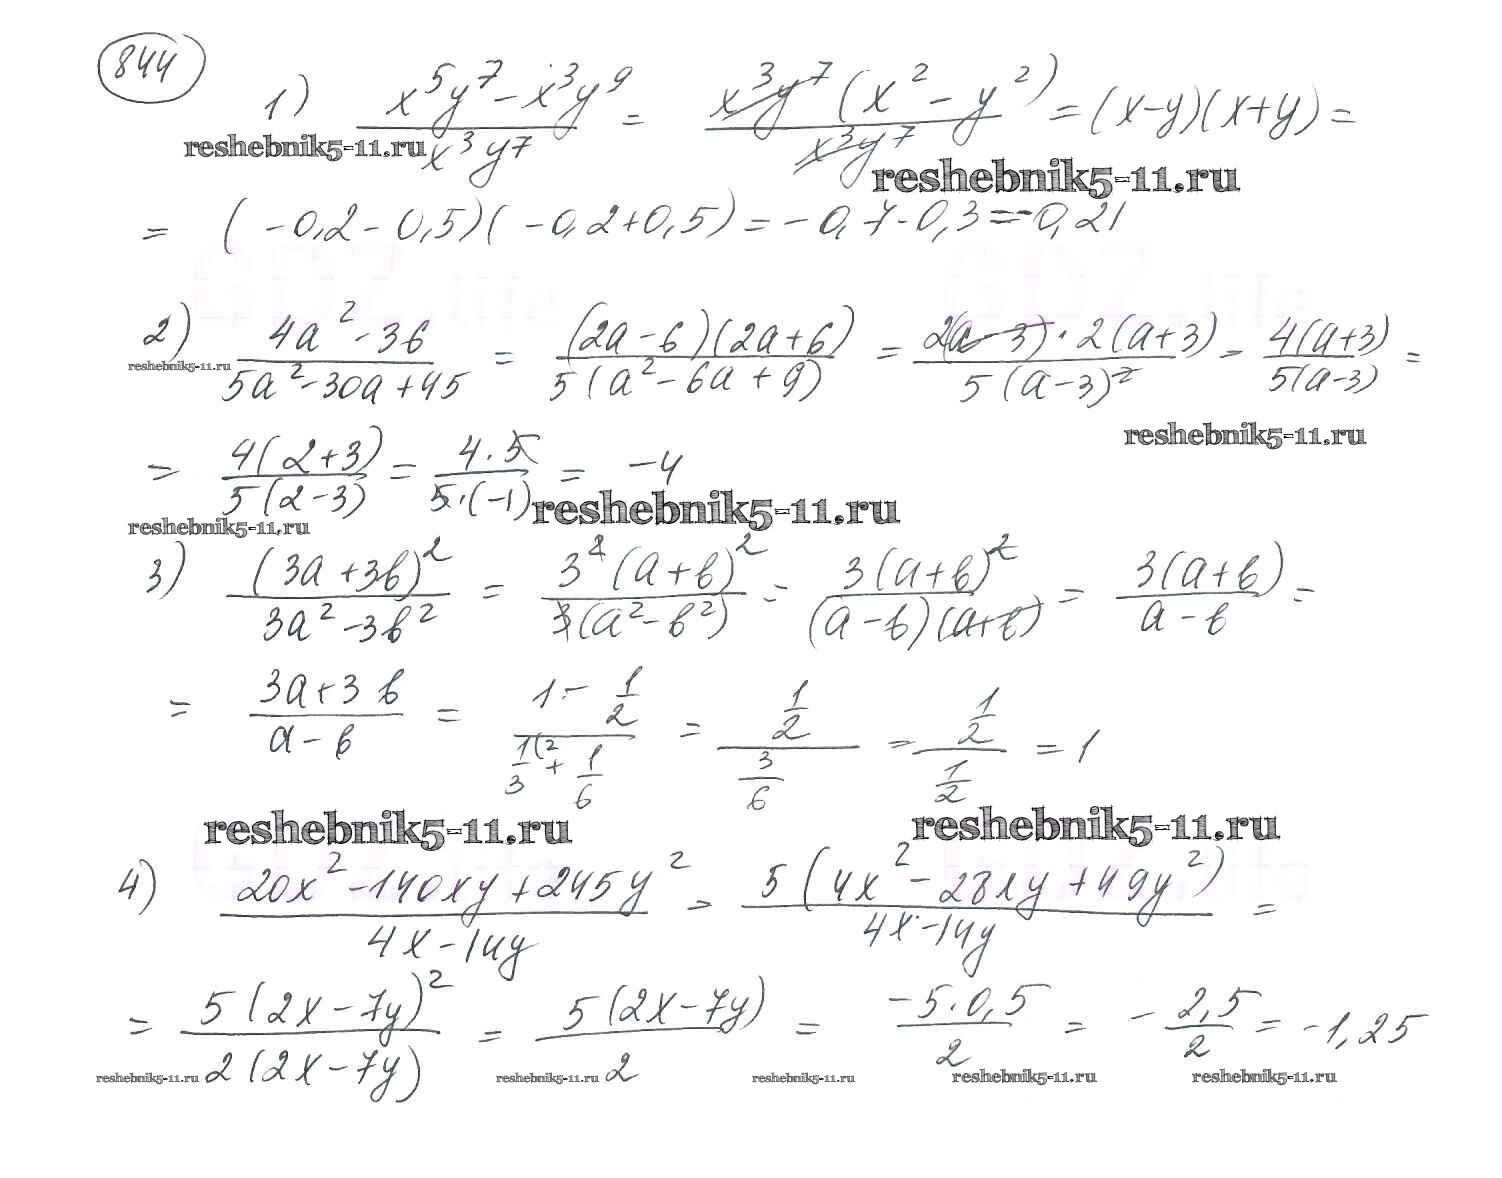 844
1) (x⁵y⁷ - x³y⁹)/(x³y⁷) = (x³y⁷(x² - y²))/(x³y⁷) = (x-y)(x+y) =
reshebnik5-11.ru
reshebnik5-11.ru
= (-0,2-0,5)(-0,2+0,5) = -0,7·0,3 = -0,21
2) (4a² - 36)/(5a² - 30a + 45) = ((2a-6)(2a+6))/(5(a² - 6a + 9)) = (2(a-3)·2(a+3))/(5(a-3)²) = (4(a+3))/(5(a-3)) =
reshebnik5-11.ru
reshebnik5-11.ru
= (4(2+3))/(5(2-3)) = (4·5)/(5·(-1)) = -4
reshebnik5-11.ru
reshebnik5-11.ru
3) (3a+3b)²/(3a² - 3b²) = (3²(a+b)²)/(3(a² - b²)) = (3(a+b)²)/((a-b)(a+b)) = (3(a+b))/(a-b) =
= (3a+3b)/(a-b) = (1 - 1/2)/(1/3 (2 + 1/6) = (1/2)/(3/6) = (1/2)/(1/2) = 1
reshebnik5-11.ru
reshebnik5-11.ru
4) (20x² - 140xy + 245y²)/(4x - 14y) = (5(4x² - 28xy + 49y²))/(4x - 14y) =
= (5(2x-7y)²)/(2(2x-7y)) = (5(2x-7y))/2 = (-5·0,5)/2 = -2,5/2 = -1,25
reshebnik5-11.ru
reshebnik5-11.ru
reshebnik5-11.ru
reshebnik5-11.ru
reshebnik5-11.ru